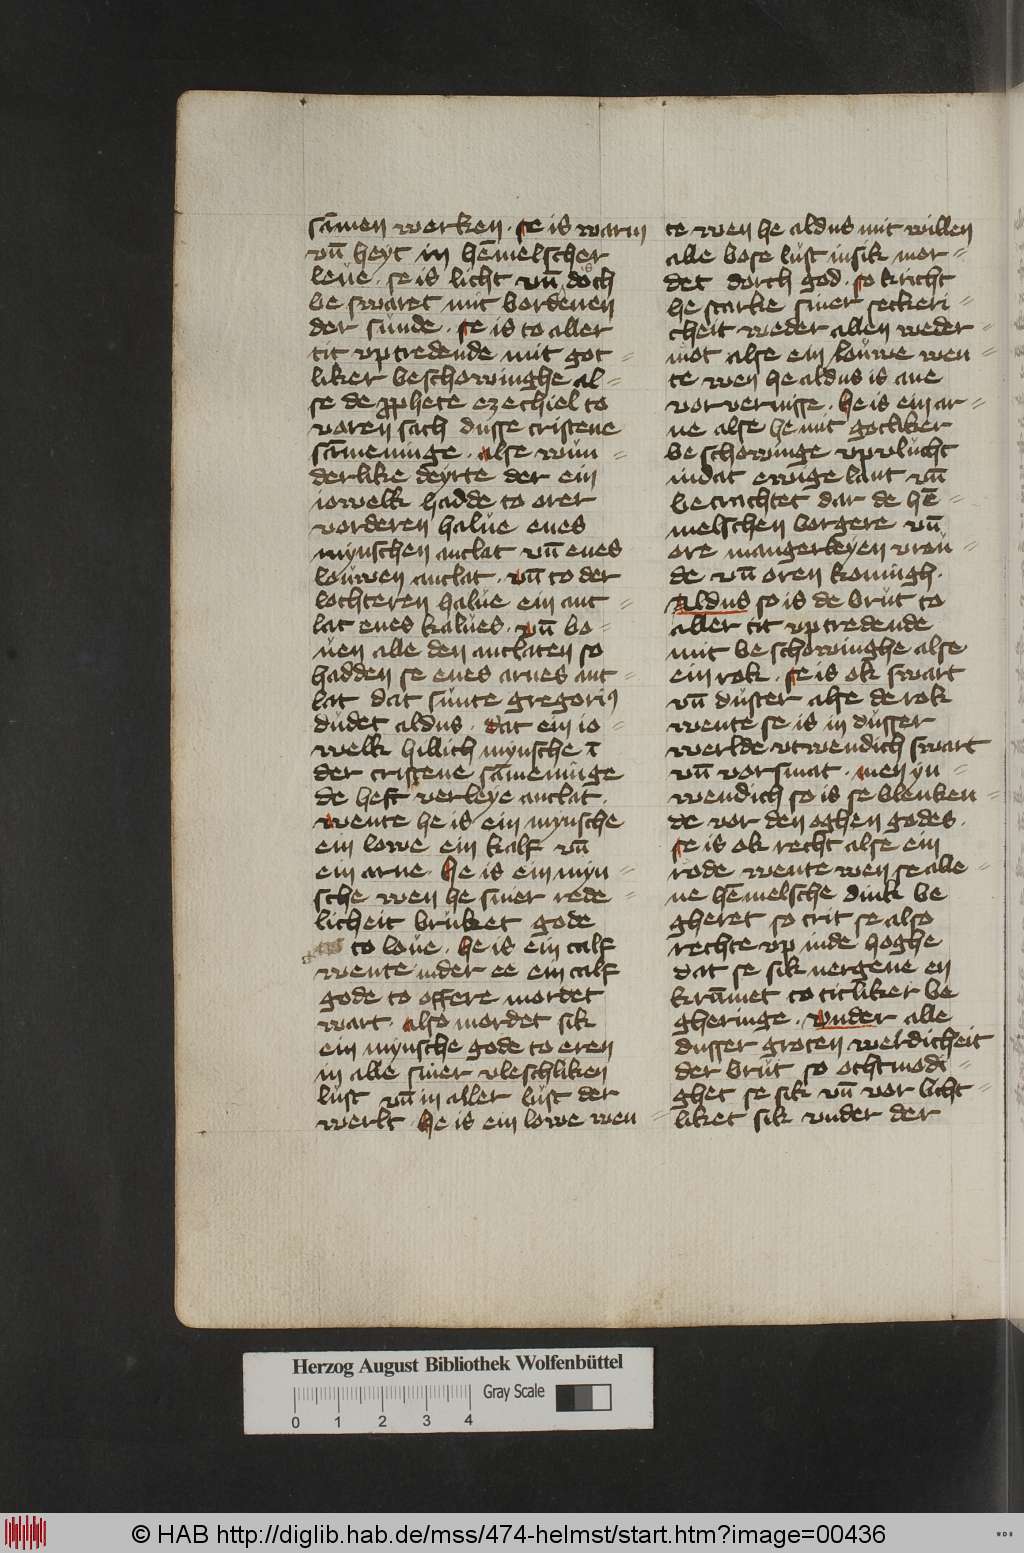 sāmen werken · se is warm
vn̄ heyt in hēmelscher
leue · se is licht vn̄ doch
be swaret mit bordenen
der sunde · se is to aller
tit vptredende mit got =
liker beschowinghe al =
se de ꝓphete ezechiel to
voren sach dusse cristene
sāmeninge · alse wun =
derlike deyrte der ein
iowelk hadde to orer
vorderen halue enes
mynschen antlat vn̄ enes
louwen antlat · vn̄ to der
lochteren halue ein ant =
lat enes kalues · vn̄ bo =
uen alle den antlaten so
hadden se enes arnes ant =
lat dat sunte gregoriꝰ
dudet aldus · dat ein io =
welk hillich mynsche ī
der cristene sāmeninge
de heft verleye antlat ·
wente he is ein mynsche
ein lowe ein kalf vn̄
ein arne · he is ein myn =
sche wen he siner rede =
licheit bruket gode
to loue · he is ein calf
wente inder ee ein calf
gode to offere mordet
wart · also mordet sik
ein mynsche gode to eren
in alle siner vleschliken
lust vn̄ in aller lust der
werlt · he is ein lowe wen =
te wen he aldus mit willen
alle bose lust insik mor =
det dorch god · so kricht
he starke siner seckeri =
cheit weder allen weder =
mot alse ein louwe wen =
te wen he aldus is ane
vorvernisse · he is ein ar =
ne alse he mit gotliker
beschowinge vpvlucht
indat ewige lant vn̄
betrachtet dar de hē =
melschen borgere vn̄
ore mangerleyen vrou =
de vn̄ oren koningh ·
Aldus so is de brut to
aller tit vptredende
mit beschowinghe alse
ein rok · se is ok swart
vn̄ duster alse de rok
wente se is in dusser
werlde vtwendich swart
vn̄ vorsmat · men yn =
wendich so is se blenken =
de vor den oghen godes ·
se is ok recht alse ein
rode wente wen se alle =
ne hēmelsche dink be
gheret so trit se also
rechte vp inde hoghe
dat se sik nergene en
krūmet to titliker be
gheringe · vnder alle
dusser groten werdicheit
der brut so othmodi =
ghet se sik vn̄ vor licht =
liket sik vnder der
Herzog August Bibliothek Wolfenbüttel
Gray Scale
0 1 2 3 4
© HAB http://diglib.hab.de/mss/474-helmst/start.htm?image=00436
WDB